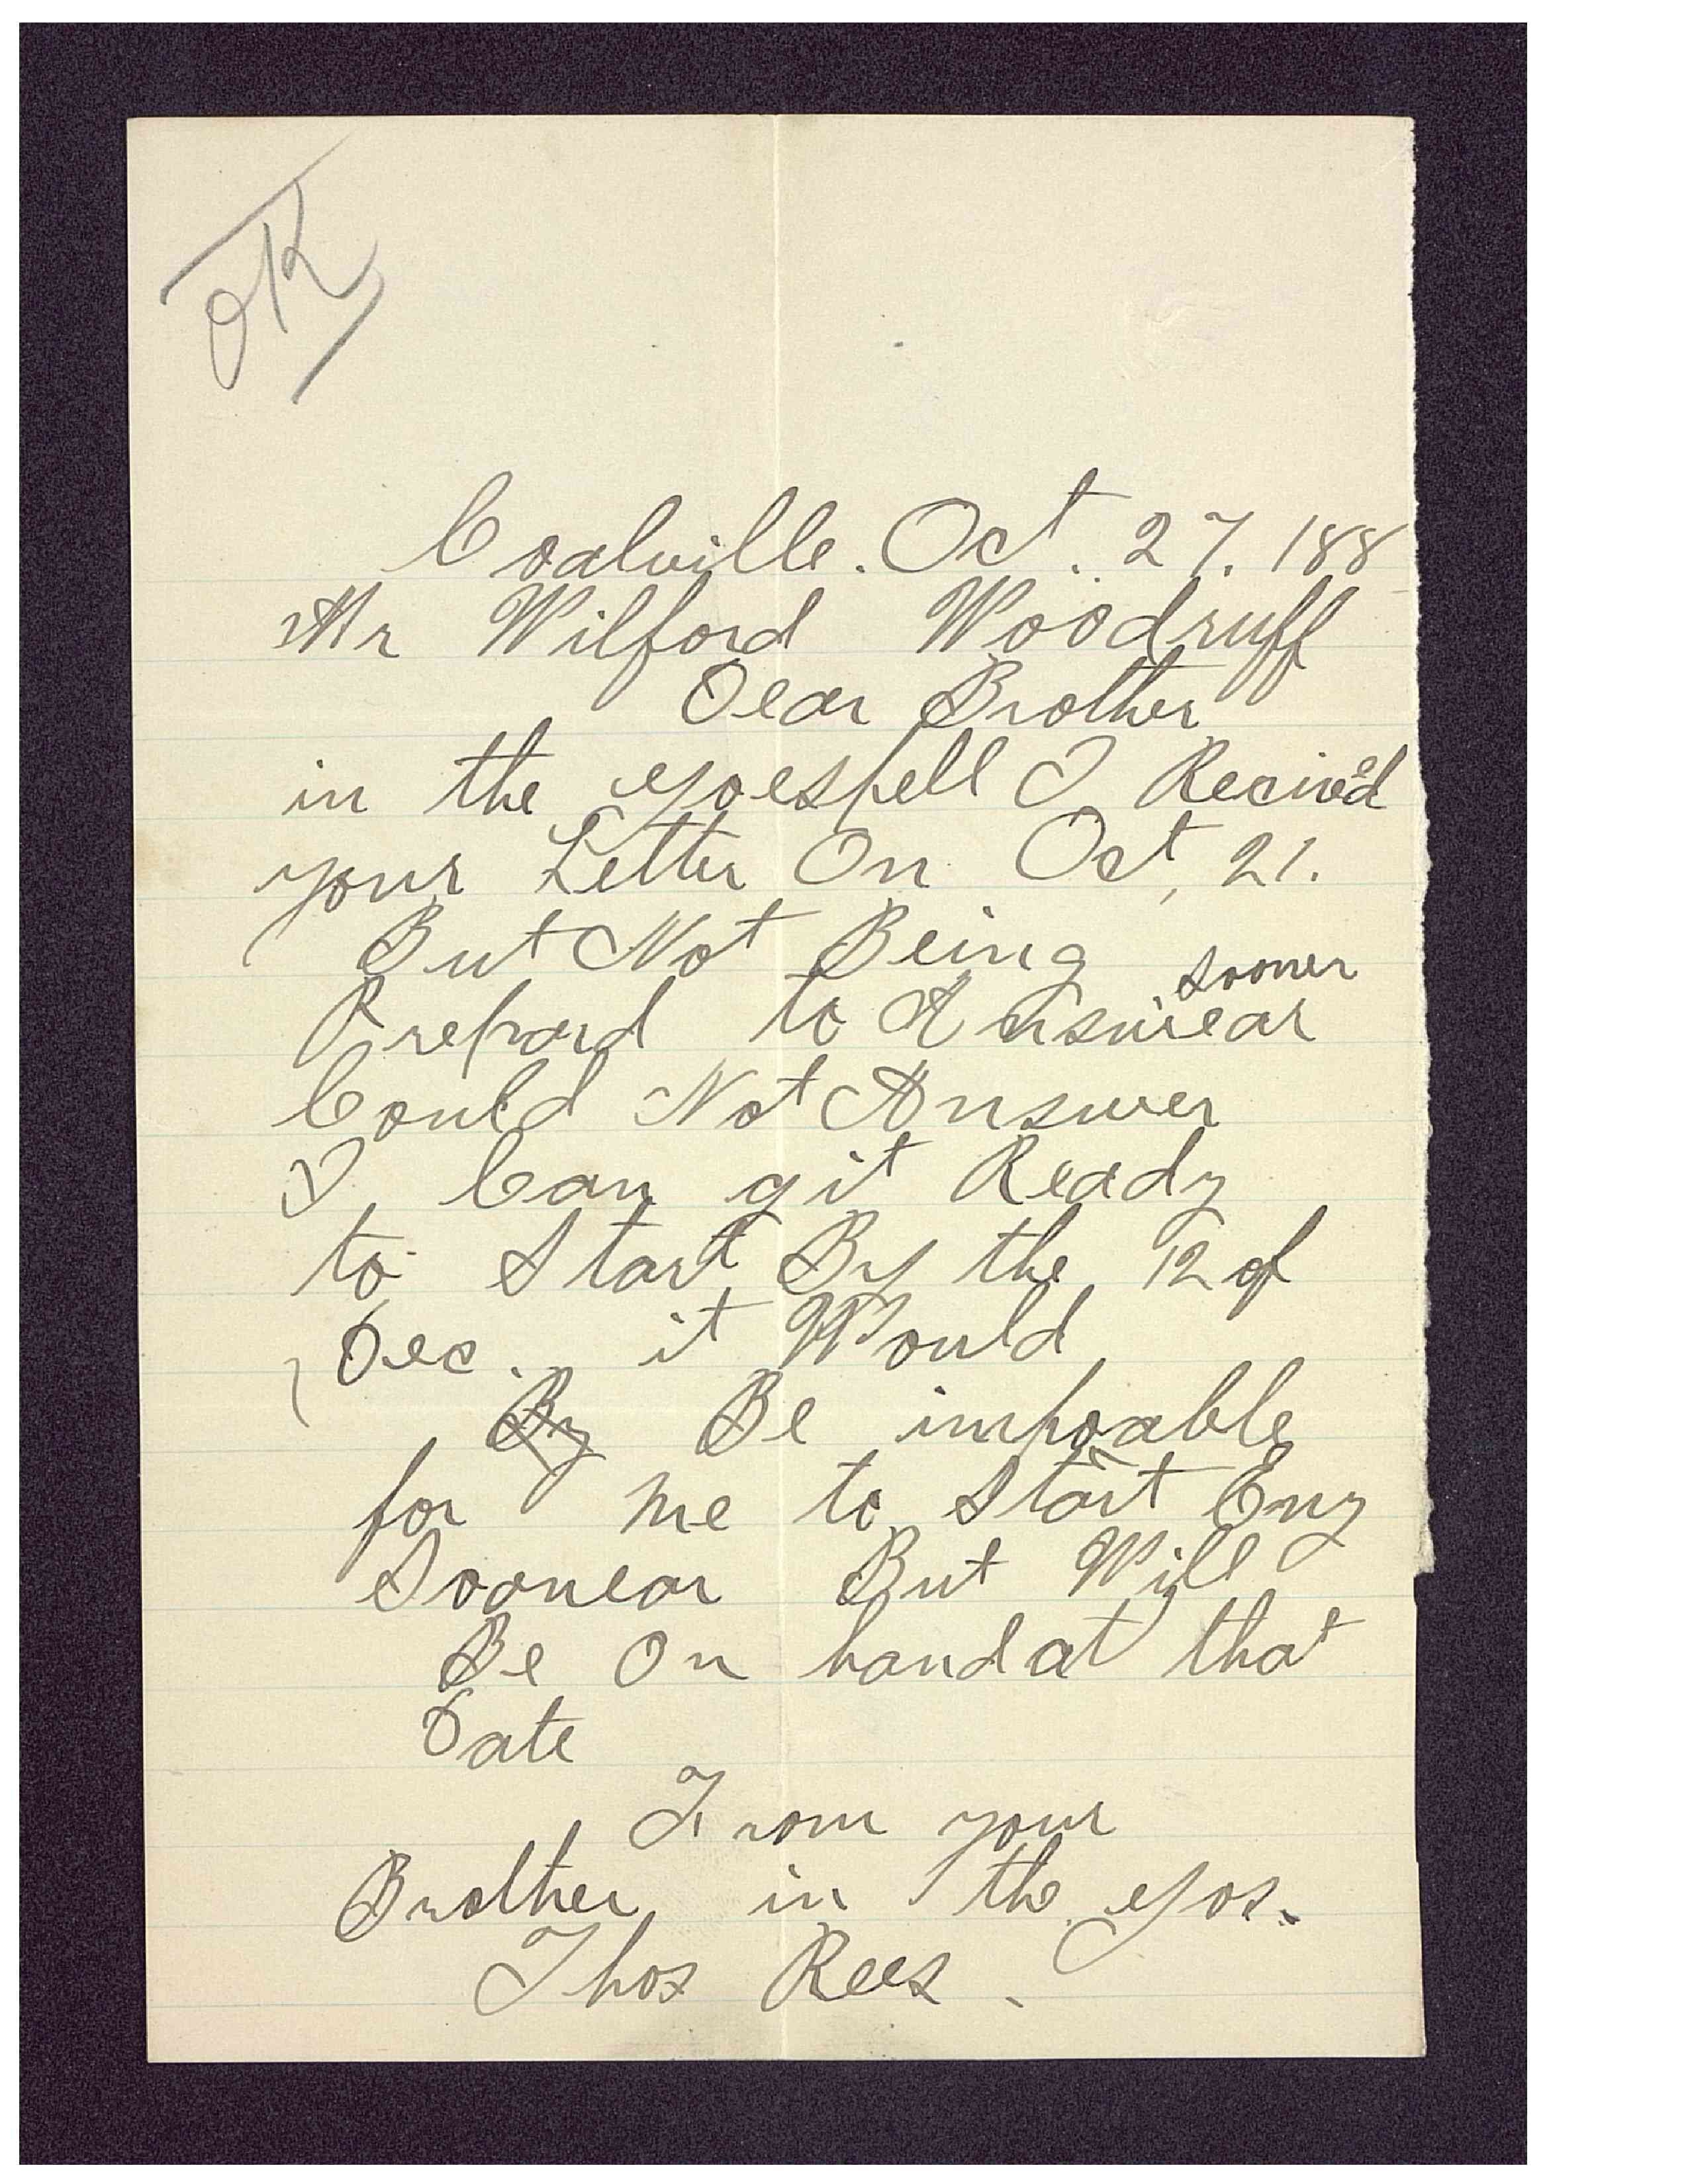 OK
Coalville. Oct. 27. 188
Mr Wilford Woodruff
Dear Brother
in the goespell I Recived
your Letter On Oct, 21.
But Not Being
sooner
Prepard to Answear
Could Not Answer
I Can git Ready
to Start By the 12 of
Dec. it Would
By Be impoable
for me to Start Eny
Soonear But Will
Be On hand at that
Date
From your
Brother in the gos.
Thos Rees.